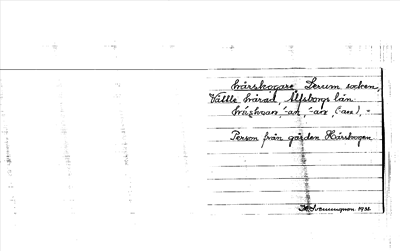 hårskogare, Lerum socken,
Vättle härad, Älfsborgs län.
-an, -ar, (-are),
Person från gården Hårskogen
1931